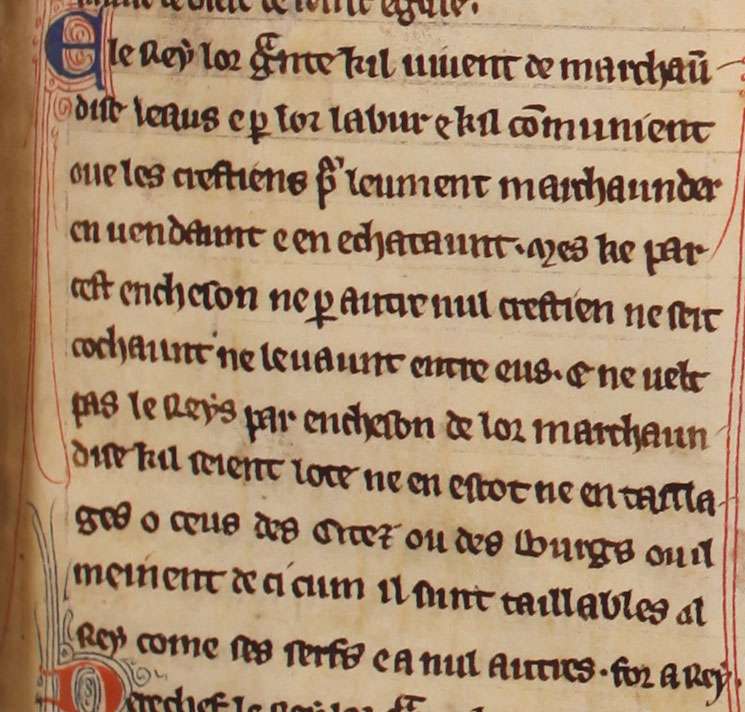 E le Rey lor gͣnte kil uiuent de marchaū
dise leaus e ꝑ lor labur e kil cōmunient
oue les crestiens pͬ leument marchaunder
en uendaunt e en echataunt. Mes ke par
cest encheson ne ꝑ autre nul crestien ne seit
cochaunt ne leuaunt entre eus. E ne uelt
pas le Reys par encheson de lor marchaun
dise kil seient lote ne en escot ne en tailla
ges o ceus des Citez ou des Burgs ou il
meinent de ci cum il sunt taillables al
Rey come ses serfs e a nul autres. for a Rey.